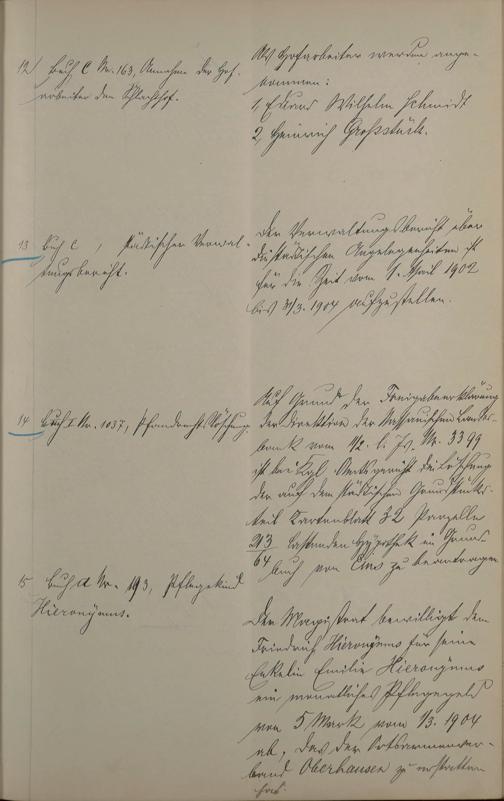 12) Buch C Nr. 163, Annahme der Hof-
arbeiter den Schlachthof.
Als Hofarbeiter werden ange-
nommen:
1, Eduard Wilhelm Schmidt
2, Heinrich Großstück.
13 Buch C, städtischer Verwal-
tungsbericht.
Der Verwaltungsbericht über
die städtischen Angelegenheiten ist
für die Zeit vom 1. April 1902
bis 31/3. 1904 aufzustellen.
14 Buch I Nr. 1037, Pfandrechtslöschung.
Auf Grund der Freigabeerklärung
der Direktion der Nassauischen Landes-
bank vom 1/2. l. Js. Nr. 3399
ist bei Kgl. Amtsgericht die Löschung
der auf dem städtischen Grundstücks-
teil Kartenblatt 32 Parzelle
213/64 lastenden Hypothek im Grund-
buch von Ems zu beantragen.
15 Buch d Nr. 193, Pflegekind
Hieronymus.
Der Magistrat bewilligt dem
Friedrich Hieronymus für seine
Enkelin Emilie Hieronymus
ein monatliches Pflegegeld
von 5 Mark vom 1/3. 1904
ab, das der Ortsarmenver-
band Oberhausen zu erstatten
hat.